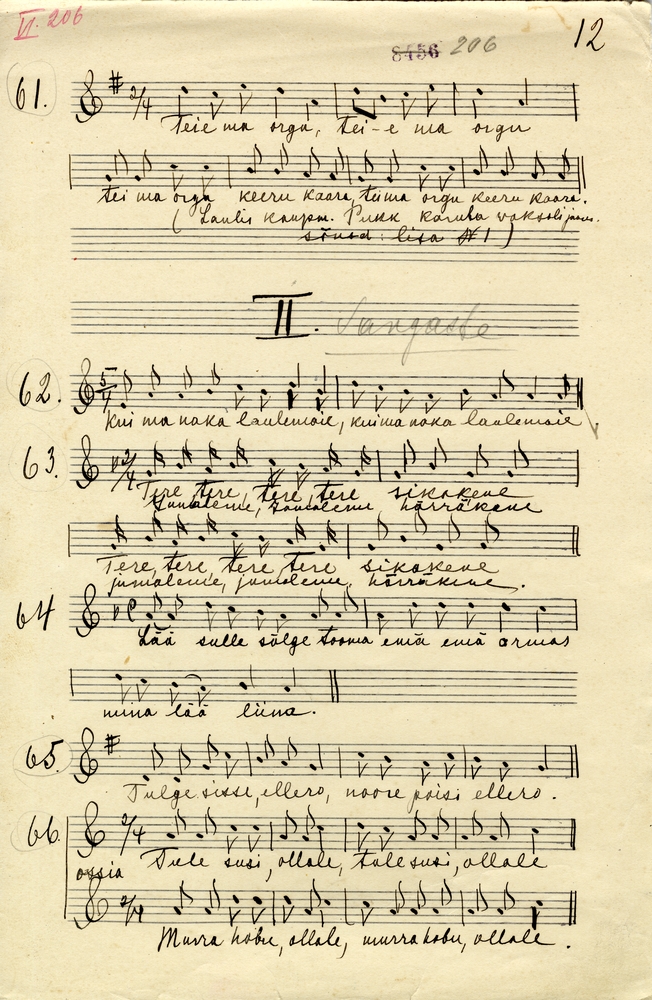 VI. 206
8456 206
12
61.
2/4
Teie ma orgu, tei-e ma orgu
tei ma orgu keeru kaara, tei ma orgu keeru kaara.
(Laulis kaupm. Pukk Karula waksali juures.
sõnad: lisa № 1)
II. Sangaste
62.
5/4
Kui ma haka laulemaie, kui ma haka laulemaie
63.
2/4
Tere, tere, tere, tere sikakene
Jumaleme, jumaleme, härräkene
Tere, tere, tere, tere sikakene
jumaleme, jumaleme, härräkene.
64
Lää sulle sõlge tooma emä emä armas
mina lää liina.
65.
Tulge sisse, ellero, noore poisi ellero.
66.
2/4
Tule susi, ollale, tule susi, ollale
ossia
2/4
Murra hobu, ollale, murra hobu, ollale.